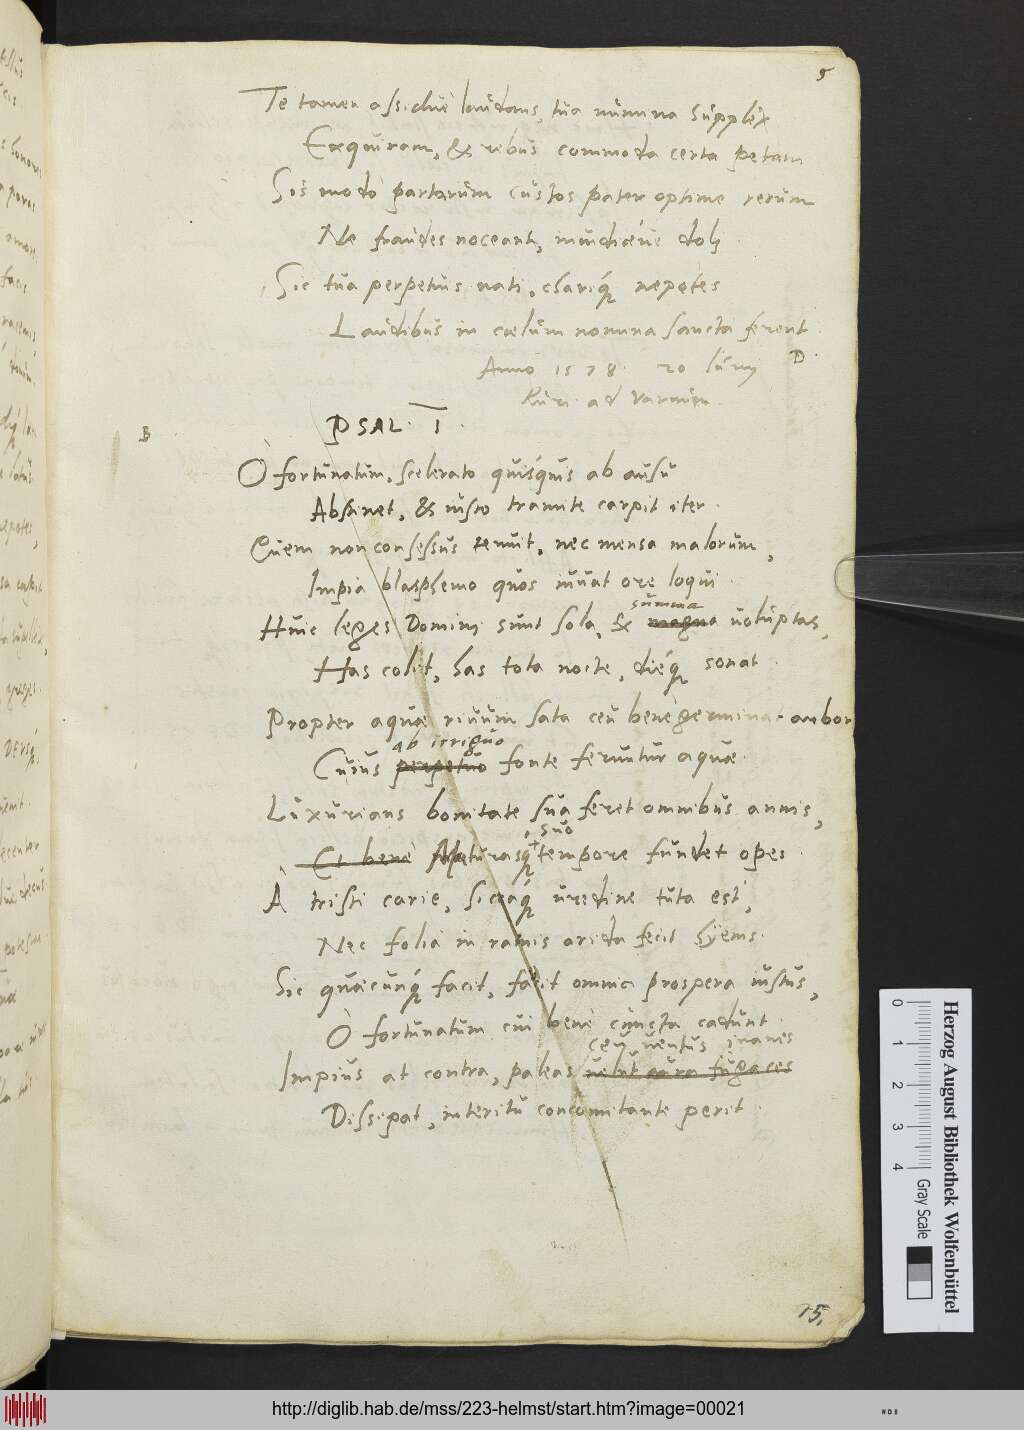 5
Te tamen assiduè laudans, tua numina supplex
Exquiram, & rebus commoda certa petam
Sis modò partarum custos pater optime rerum
Ne fraudes noceant, inuidiaeue dolj
Sic tua perpetuis nati, clariq́ nepotes
Laudibus in coelum nomina sancta ferent.
Anno 1578. 20 Iunij
D
Ruri ad
B
PSAL. I.
O fortunatum, scelerato quisquis ab ausu
Abstinet, & iusto tramite carpit iter.
Quem non consessus tenuit, nec mensa malorum,
Impia blasphemo quos iuuat ore loqui.
summa
Huic leges Domini sunt sola, & magna uoluptas,
Has colit, has tota nocte, dieq́ sonat.
Propter aquae riuum sata ceu benè germinat arbor
ab irriguo
Cuius perpetuo fonte feruntur aquae.
Luxurians bonitate sua feret omnibus annis,
suo
Et benè Maturasq́ tempore fundet opes.
À tristi carie, siccaq́ uredine tuta est,
Nec folia in ramis arida fecit hyems.
Sic quaecunq́ facit, facit omnia prospera iustus,
O fortunatum cui benè cuncta cadunt.
ceu uentus inanes
Impius at contra, paleas uelut aura fugaces
Dissipat, interitu concomitante perit.
15,
Herzog August Bibliothek Wolfenbüttel
0 1 2 3 4
Gray Scale
http://diglib.hab.de/mss/223-helmst/start.htm?image=00021